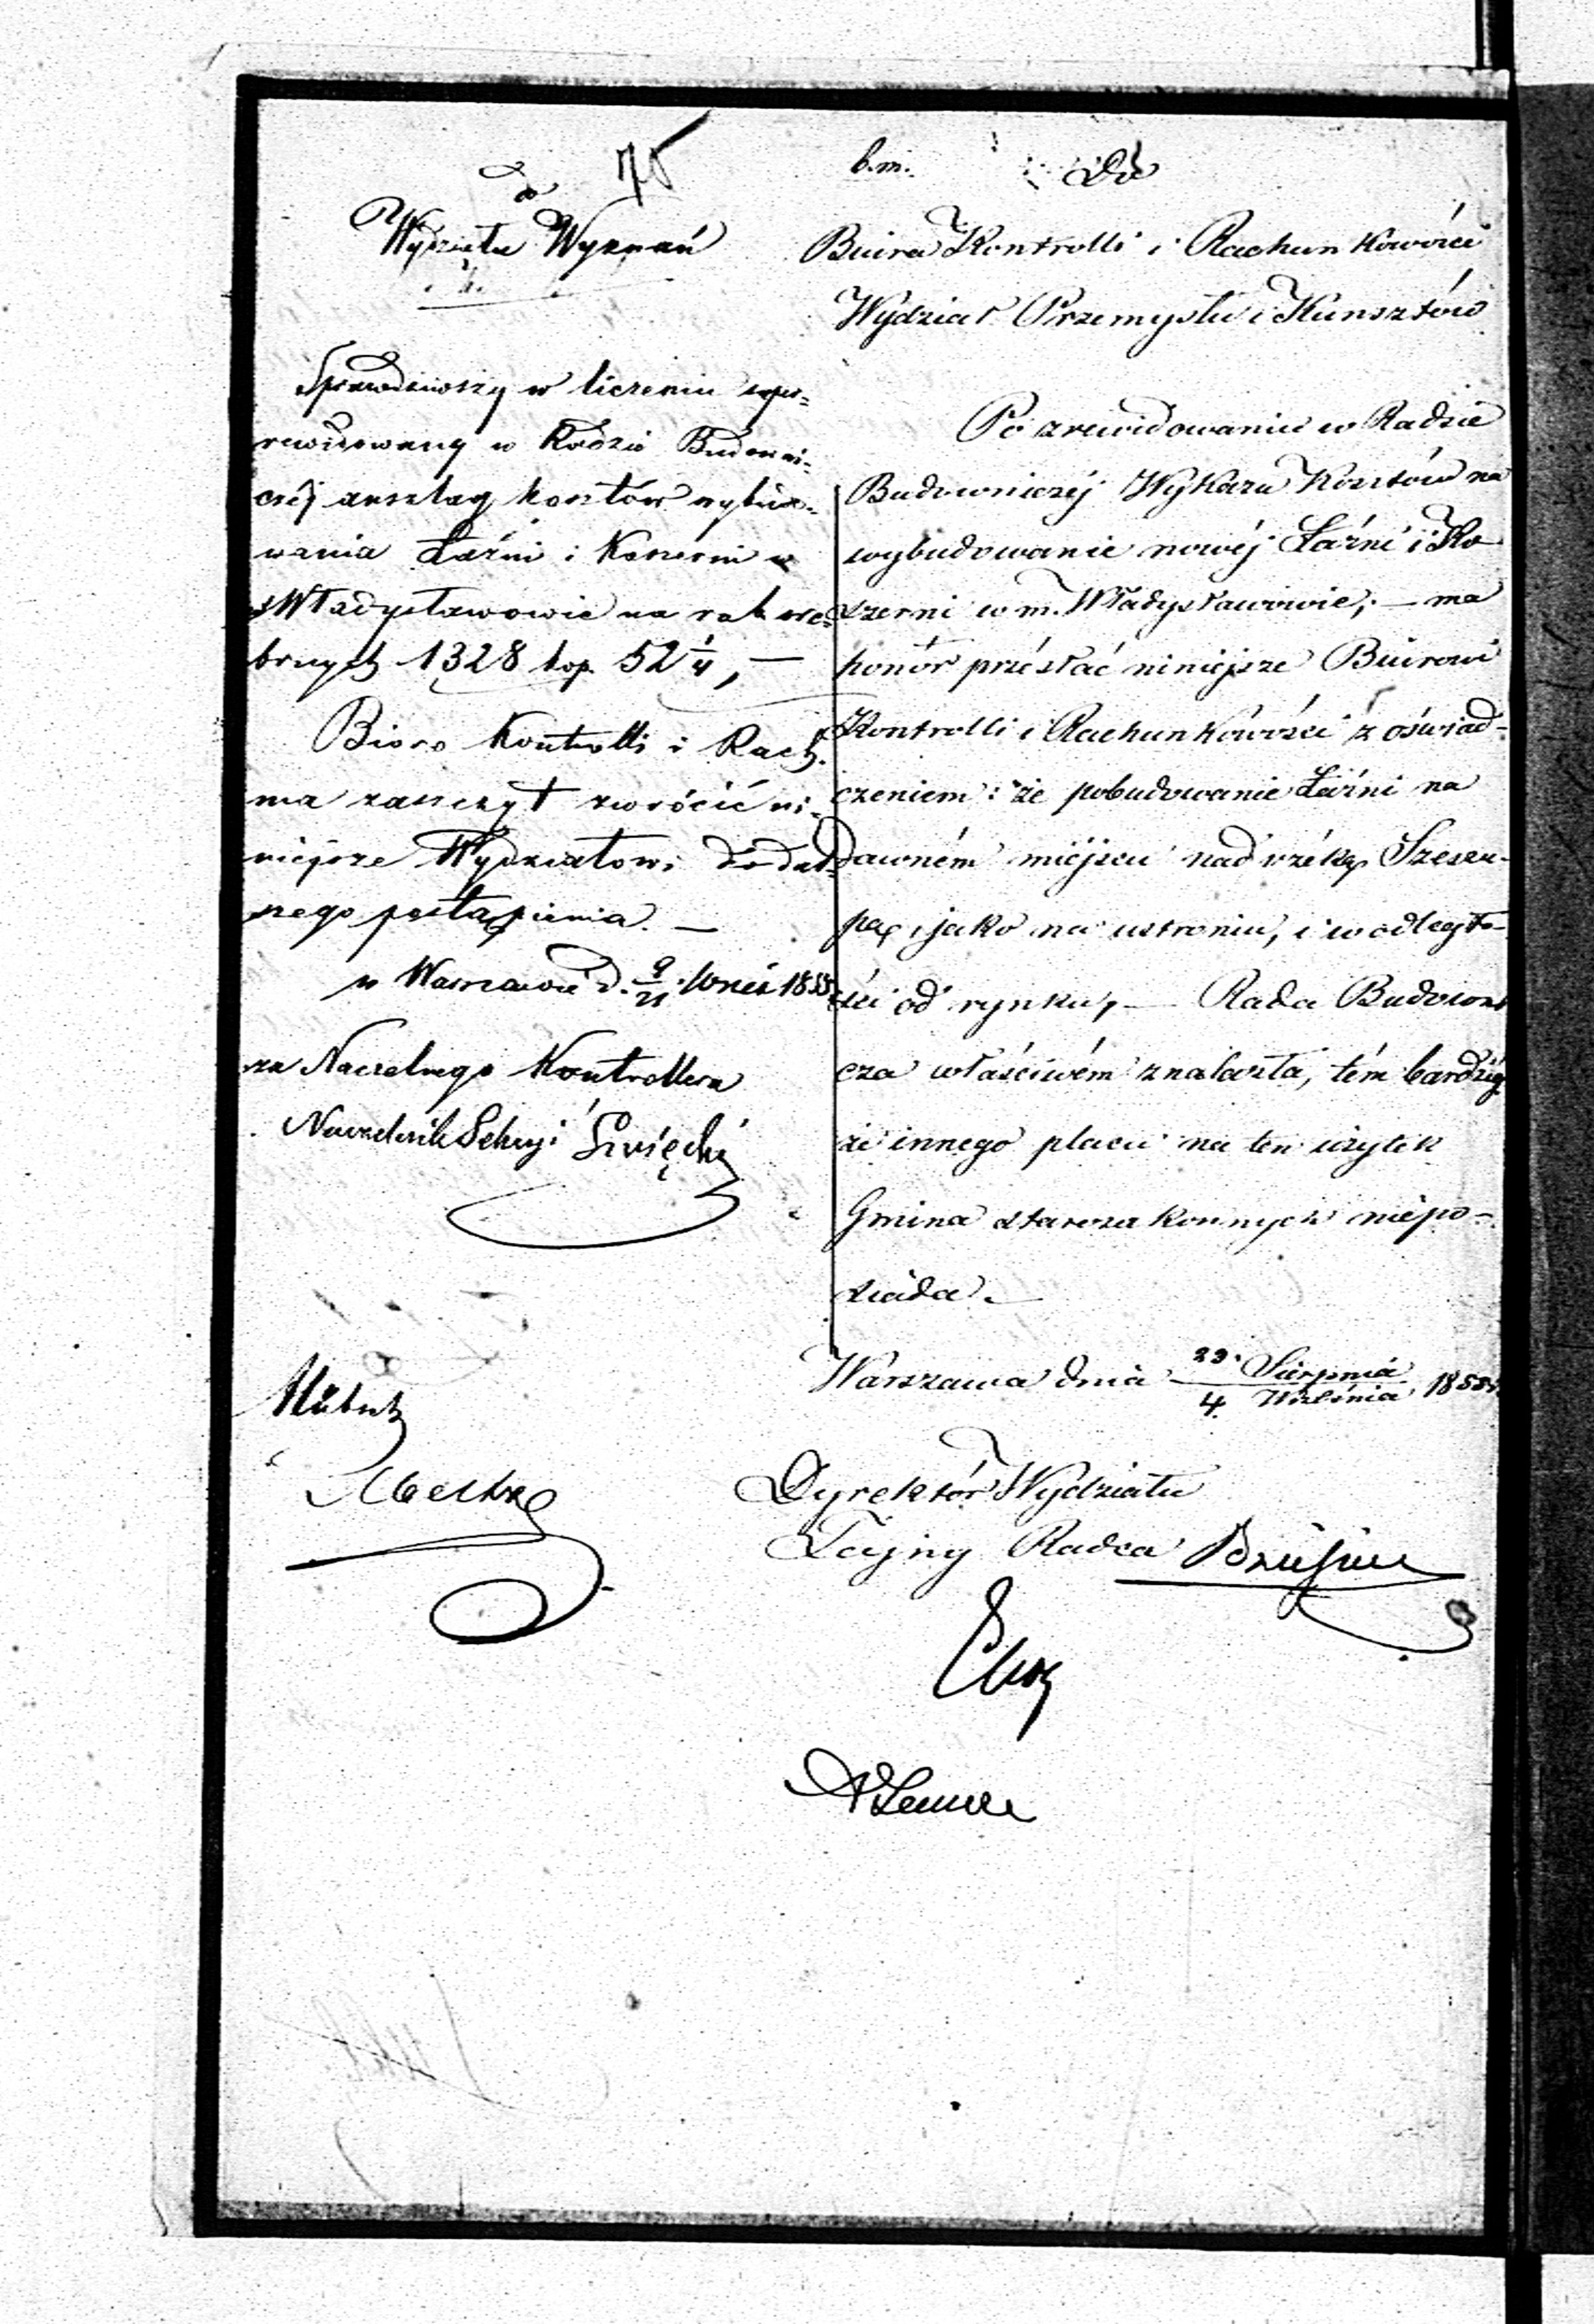 75
do
Wydziału Wyznań
Sprawdziwszy w liczeniu zapo-
rewidowany w Radzie Budowni-
czéj anszlag kosztów wybudo-
wania Łaźni i Koszerni w
Władysławowie na rub. sre-
brnych 1328 kop. 52 1/4, —
Bióro Kontrolli i Rach.
ma zaszczyt zwrócić ni-
niejsze Wydziałowi do dal-
szego postąpienia. —
w Warszawie d. 9/21 Wrześ 185
za Naczelnego Kontrollera
Naczelnik Sekcyi Święcki
b. m. Do
Biura Kontrolli i Rachunkowości
Wydział Przemysłu i Kunsztów
Po zrewidowaniu w Radzie
Budowniczéj Wykazu Kosztów na
wybudowanie nowéj Łaźni i Ko
szerni w m. Władysławowie, — ma
honór przésłać niniejsze Biurowi
Kontrolli i Rachunkowości z oświad-
czeniem: że pobudowanie Łaźni na
dawném miéjscu nad rzéką Szeszu-
pą, jako na ustroniu, i w odległo-
ści od rynku, — Rada Budowni
cza właściwém znalazła, tém bardziéj
że innego placu na ten użytek
Gmina starozakonnych niepo-
siada. —
Warszawa dnia 23. Sierpnia / 4. Września 185
Dyrektór Wydziału
Tajny Radca